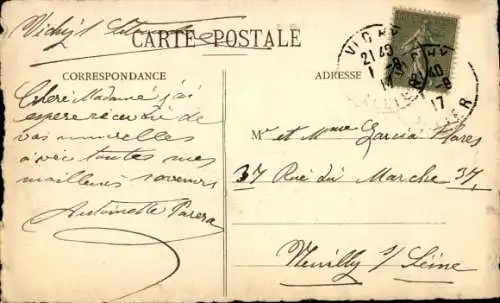 Vichy 1
CARTE POSTALE
CORRESPONDANCE
ADRESSE
VICHY
21 40
1 - 8
17
ALLIER
Chère Madame j'ai
espere de
vos nouvelles
avec toutes mes
meilleurs souvenirs
Antoinette Parera
Mr et Mme Garcia Flores
37 Rue du Marche 37
Neuilly s/ Seine